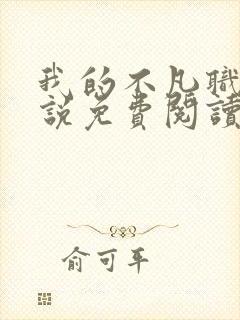 我的不凡職
說免費閱讀
俞可平